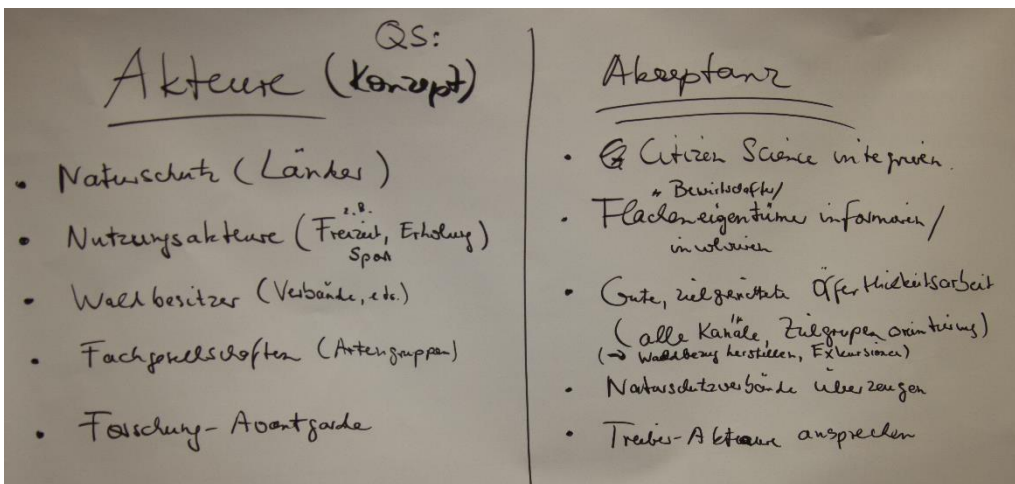 QS:
Akteure (Konzept)
• Naturschutz (Länder)
z.B.
• Nutzungsakteure (Freizeit, Erholung)
Sport
• Waldbesitzer (Verbände, etc.)
• Fachgesellschaften (Artengruppen)
• Forschung-Avantgarde
Akzeptanz
• Citizen Science integrieren.
+ Bewirtschafter/
• Flächeneigentümer informieren/
involvieren
• Gute, zielgerichtete Öffentlichkeitsarbeit
(alle Kanäle, Zielgruppenorientierung)
(→ Waldbezug herstellen, Exkursionen)
• Naturschutzverbände überzeugen
• Treiber-Akteure ansprechen